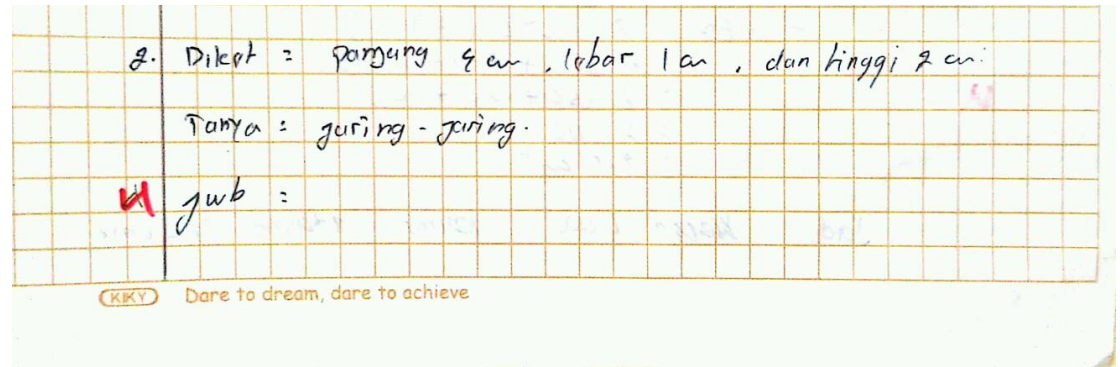 2. Diket = panjang 4 cm, lebar 1 cm, dan tinggi 2 cm.
Tanya = jaring-jaring.
4 jwb =
KIKY Dare to dream, dare to achieve